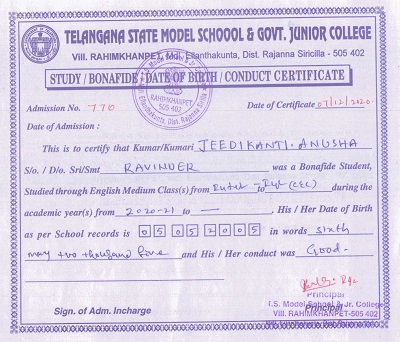 TELANGANA STATE MODEL SCHOOOL & GOVT. JUNIOR COLLEGE
Vill. RAHIMKHANPET, Mdl. Ellanthakunta, Dist. Rajanna Siricilla - 505 402
STUDY / BONAFIDE / DATE OF BIRTH / CONDUCT CERTIFICATE
Admission No. 770
Date of Certificate 07/12/2020
RAHIMKHANPET
505 402
Date of Admission :
This is to certify that Kumar/Kumari JEEDIKANTI. ANUSHA
S/o. / D/o. Sri/Smt RAVINDER was a Bonafide Student,
Studied through English Medium Class(s) from Inter to (CEC) during the
academic year(s) from 2020-21 to — . His / Her Date of Birth
as per School records is 05052005 in words sixth
may two thousand five and His / Her conduct was Good.
Principal
T.S. Model School & Jr. College
Sign. of Adm. Incharge
Principal
Vill. RAHIMKHANPET-505 402